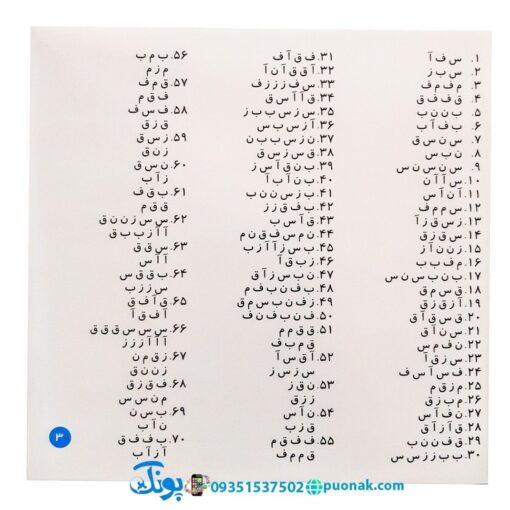 ۱. س ف آ
۲. س ب ز
۳. م ف م ف
۴. ق ف ف ق
۵. ب ن ن ب
۶. ب ف آ ب
۷. س ن س ق
۸. ن ب س
۹. س ن س ن س
۱۰. س آ آ ن
۱۱. آ ن آ س
۱۲. س م م ف
۱۳. ز س ق ز آ
۱۴. س ق ز ق
۱۵. ز ن ن آ ز
۱۶. م ف ب ب
۱۷. ب ن ب س ن س
۱۸. ق س م ق
۱۹. آ ز ق ز ق
۲۰. ق س ق آ ق
۲۱. س ن آ ق
۲۲. ن ف م س
۲۳. س ز ق آ
۲۴. ف س آ س ف
۲۵. م ز ق م
۲۶. م ب ز ق
۲۷. ن ف آ س
۲۸. ق آ ز آ ق
۲۹. ق ف ن ن ب
۳۰. ب ب ز ز س س
۳۱. ف ق آ ف
۳۲. آ ق ق آ ن آ
۳۳. س ف ز ز ز ف
۳۴. ق آ آ س ق
۳۵. س ز س ب ب ز
۳۶. آ ز س ب س
۳۷. ن ز س ب ب ن
۳۸. ق س ز س ق
۳۹. ب ن ق آ س ز
۴۰. ب ن آ ب آ
۴۱. ب ز س ن ن ب
۴۲. ب ف ق ز ز
۴۳. ق آ س ب
۴۴. ن م س ف ق ن م
۴۵. ب س ز آ آ ز ب
۴۶. ز ب ق آ
۴۷. ن ب س ز آ ق
۴۸. ب ف ن ب ف م
۴۹. ز ف ن ب س م ق
۵۰. ف ن ب ف ن ف
۵۱. ق ق م م
ق م ب ف
۵۲. آ ق س آ
س ز س ز
۵۳. ن ق ز
ز ز ق
۵۴. ن آ س
ق ز ب
۵۵. ف ف ق م
ق م م ف
۵۶. ب م ب
م ز م
۵۷. ق م ف
ف ق م
۵۸. ف س ف
ق ز ق
۵۹. ز س ق
ز ن ق
۶۰. ن س ق
ز آ ب
۶۱. ب ق ف
ق ق م
۶۲. س س ز ن ن ق
آ آ ز ب ب ق
۶۳. س ق ق
آ آ س
۶۴. ب ق ق س
س ز ز ب
۶۵. ق آ ف ق
آ ف ق آ
۶۶. س س س ق ق ق
آ آ آ ز ز ز
۶۷. ز ق م ن
ز ن ن ق
۶۸. ف ق ز ق
م ن س س
۶۹. ب س ن
ن آ ب
۷۰. ب ف ف ق
آ ز آ ب
۳
پونک 09351537502 puonak.com